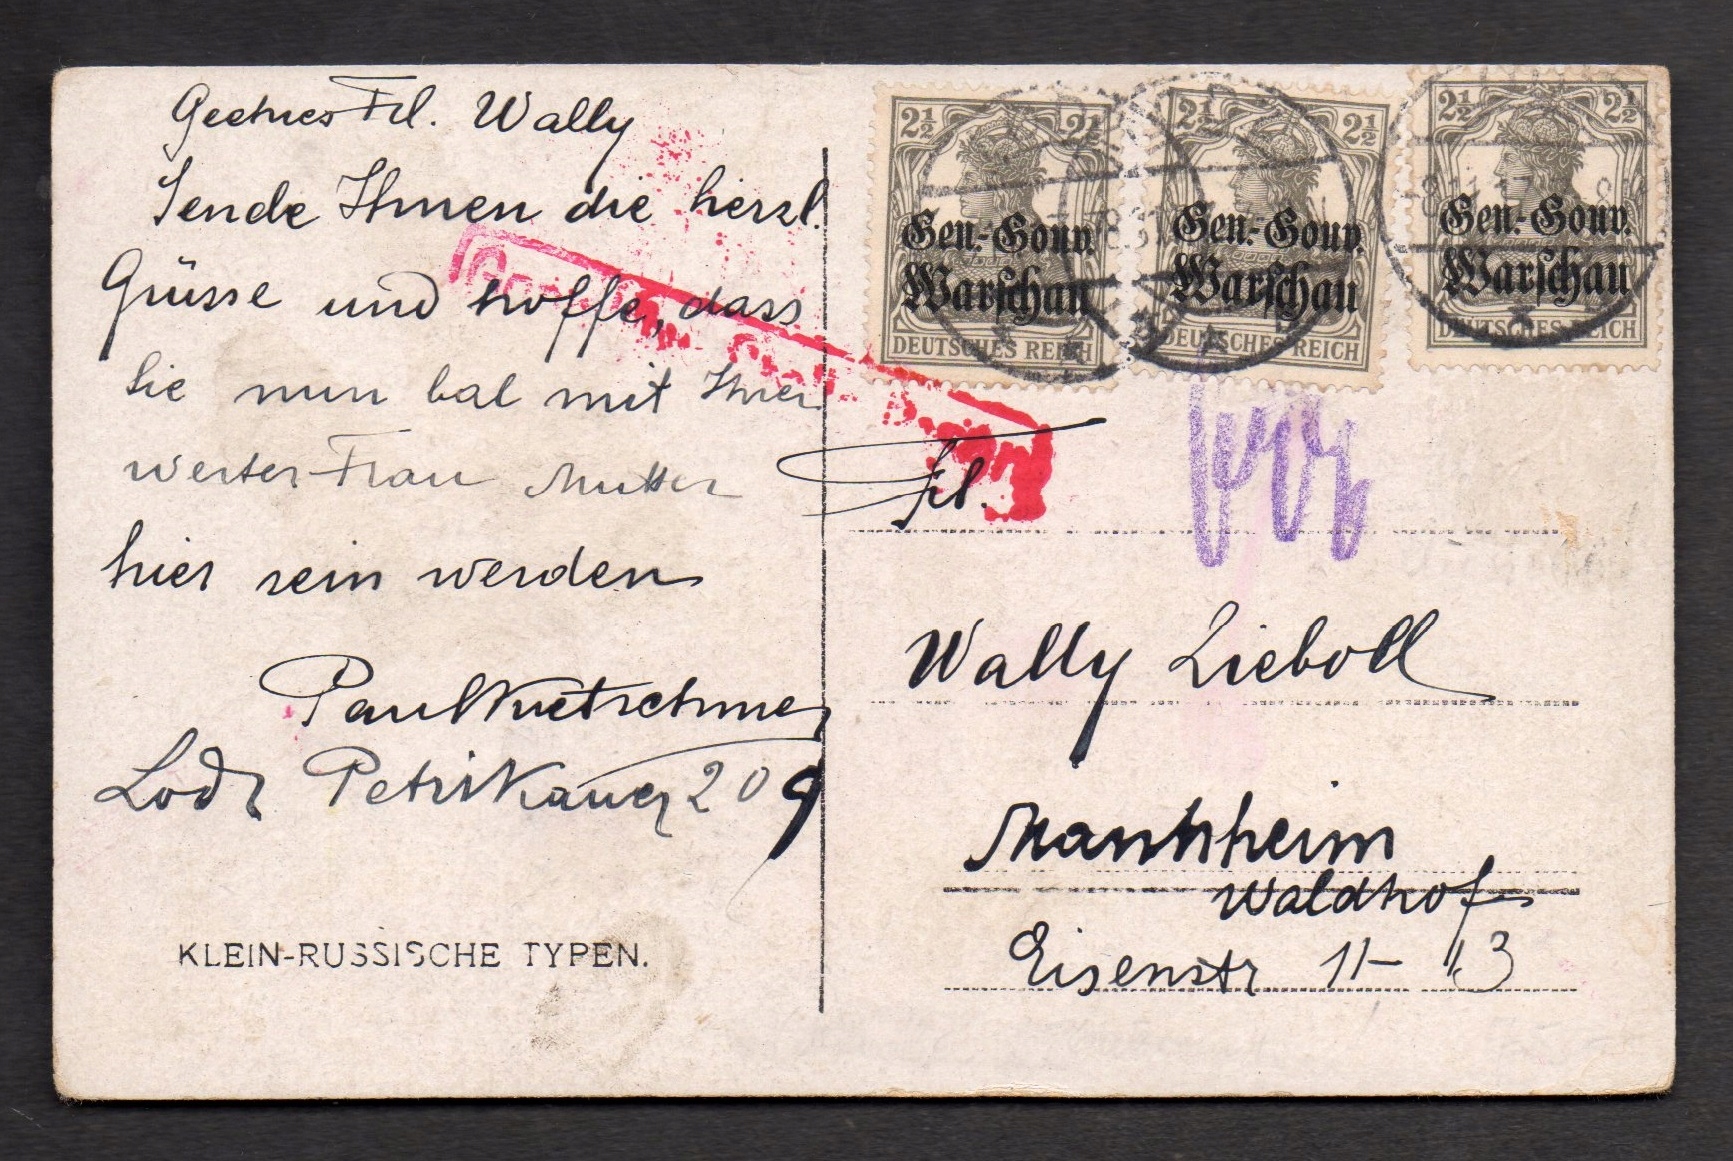 Geehrtes Frl. Wally
Sende Ihnen die herzl.
Grüsse und hoffe, dass
Sie nun bal mit Ihrer
werter Frau Mutter
hier sein werden
Paul
Lodz Petrikauer 209
KLEIN-RUSSISCHE TYPEN.
2½ 2½
Gen.-Gouv.
Warschau
DEUTSCHES REICH
2½ 2½
Gen.-Gouv.
Warschau
DEUTSCHES REICH
2½ 2½
Gen.-Gouv.
Warschau
DEUTSCHES REICH
Frl.
Wally Lieboll
Mannheim
Waldhof
Eisenstr 11-13